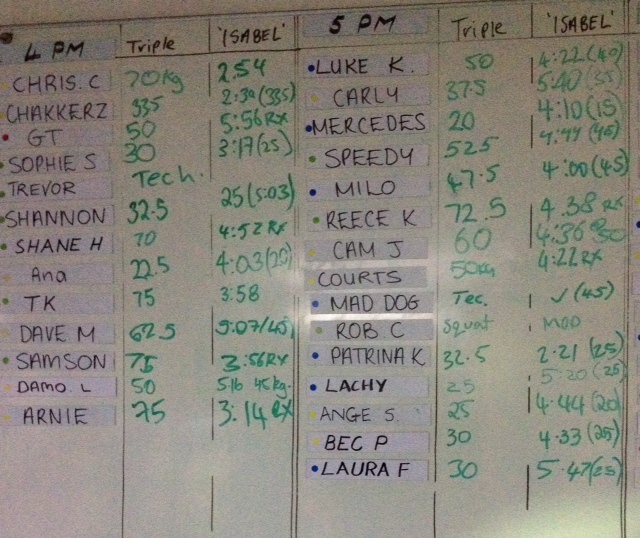 4 PM Triple 'ISABEL'
CHRIS. C 70kg 2.54
CHAKKERZ 335 2:39 (335)
GT 50 5:56 RX
SOPHIE S 30 3:17 (25)
TREVOR Tech. 25 (5:03)
SHANNON 32.5 4:52 RX
SHANE H 70 4:03 (20)
Ana 22.5
TK 75 3:58
DAVE M 62.5 5:07/45
SAMSON 75 3:56RX
DAMO. L 50 5:16 45kg.
ARNIE 75 3:14 RX
5 PM Triple 'ISABEL'
LUKE K. 50 4:22 (40)
CARLY 37.5 5:40 (35)
MERCEDES 20 4:10 (15)
SPEEDY 52.5 4:44 (45)
MILO 47.5 4:00 (45)
REECE K 72.5 4.38 RX
CAM J 60 4:36 50
COURTS 50kg 4:22 RX
MAD DOG Tec. ✓ (45)
ROB C Squat MOD
PATRINA K 32.5 2.21 (25)
LACHY 25 5:20 (25)
ANGE S. 25 4.44 (20)
BEC P 30 4.33 (25)
LAURA F 30 5.47 (25)